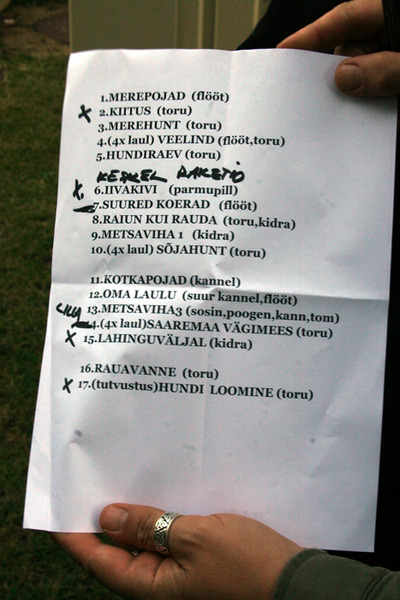 1.MEREPOJAD (flööt)
X 2.KIITUS (toru)
3.MEREHUNT (toru)
4.(4x laul) VEELIND (flööt,toru)
5.HUNDIRAEV (toru)
KESKEL RAKETÖ
X. 6.IIVAKIVI (parmupill)
7.SUURED KOERAD (flööt)
8.RAIUN KUI RAUDA (toru,kidra)
9.METSAVIHA 1 (kidra)
10.(4x laul) SÕJAHUNT (toru)
11.KOTKAPOJAD (kannel)
12.OMA LAULU (suur kannel,flööt)
13.METSAVIHA3 (sosin,poogen,kann,tom)
4.(4x laul)SAAREMAA VÄGIMEES (toru)
X 15.LAHINGUVÄLJAL (kidra)
16.RAUAVANNE (toru)
X 17.(tutvustus)HUNDI LOOMINE (toru)